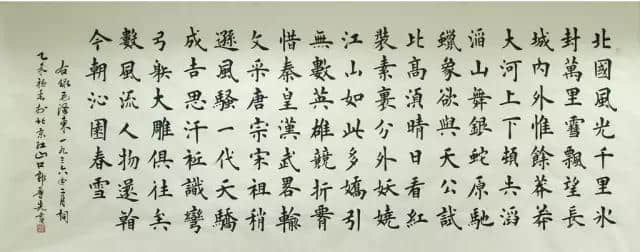 北國風光千里冰
封萬里雪飄望長
城內外惟餘莽莽
大河上下頓失滔
滔山舞銀蛇原馳
蠟象欲與天公試
比高須晴日看紅
裝素裹分外妖嬈
江山如此多嬌引
無數英雄競折腰
惜秦皇漢武畧輸
文采唐宗宋祖稍
遜風騷一代天驕
成吉思汗祗識彎
弓射大雕俱往矣
數風流人物還看
今朝沁園春雪
右錄毛澤東一九三六年二月詞
乙未 北京江山口郭